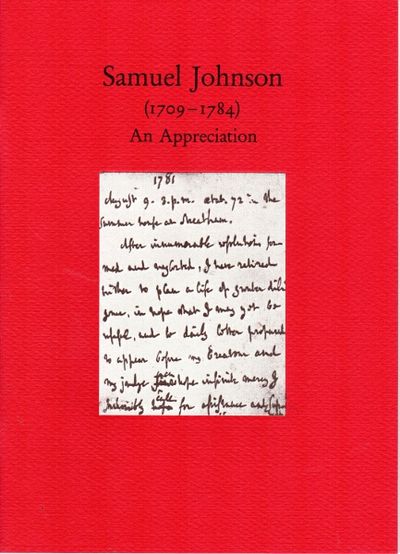 Samuel Johnson
(1709–1784)
An Appreciation
1781
August 9. 3. p.m. ætat. 72 in the
summer house at Streatham.
After innumerable resolutions for
med and neglected, I have retired
hither to plan a life of greater dili
gence, in hope that I may yet be
useful, and be daily better prepared
to appear before my Creatour and
my judge from whose infinite mercy I
humbly call for assistance and